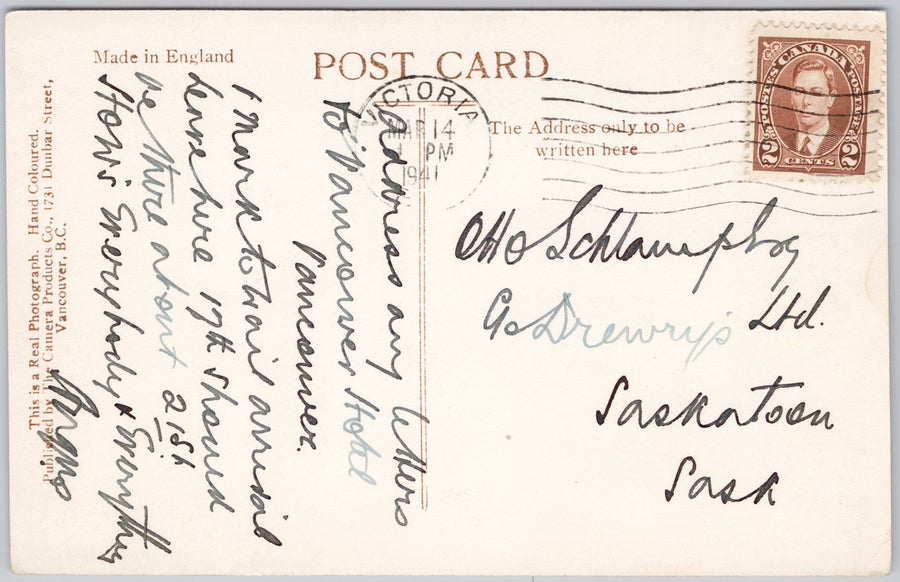 Made in England
POST CARD
This is a Real Photograph. Hand Coloured.
Published by The Camera Products Co., 1731 Dunbar Street,
Vancouver, B.C.
VICTORIA
MAR 14
1 PM
1941
The Address only to be
written here
POSTES CANADA POSTAGE
2 CENTS 2
Address any letters
to Vancouver Hotel
Vancouver.
to wait arrival
leave here 17th should
be there about 21st
How's Everybody & Everything
Otto Schlampp Esq
c/o Drewrys Ltd.
Saskatoon
Sask